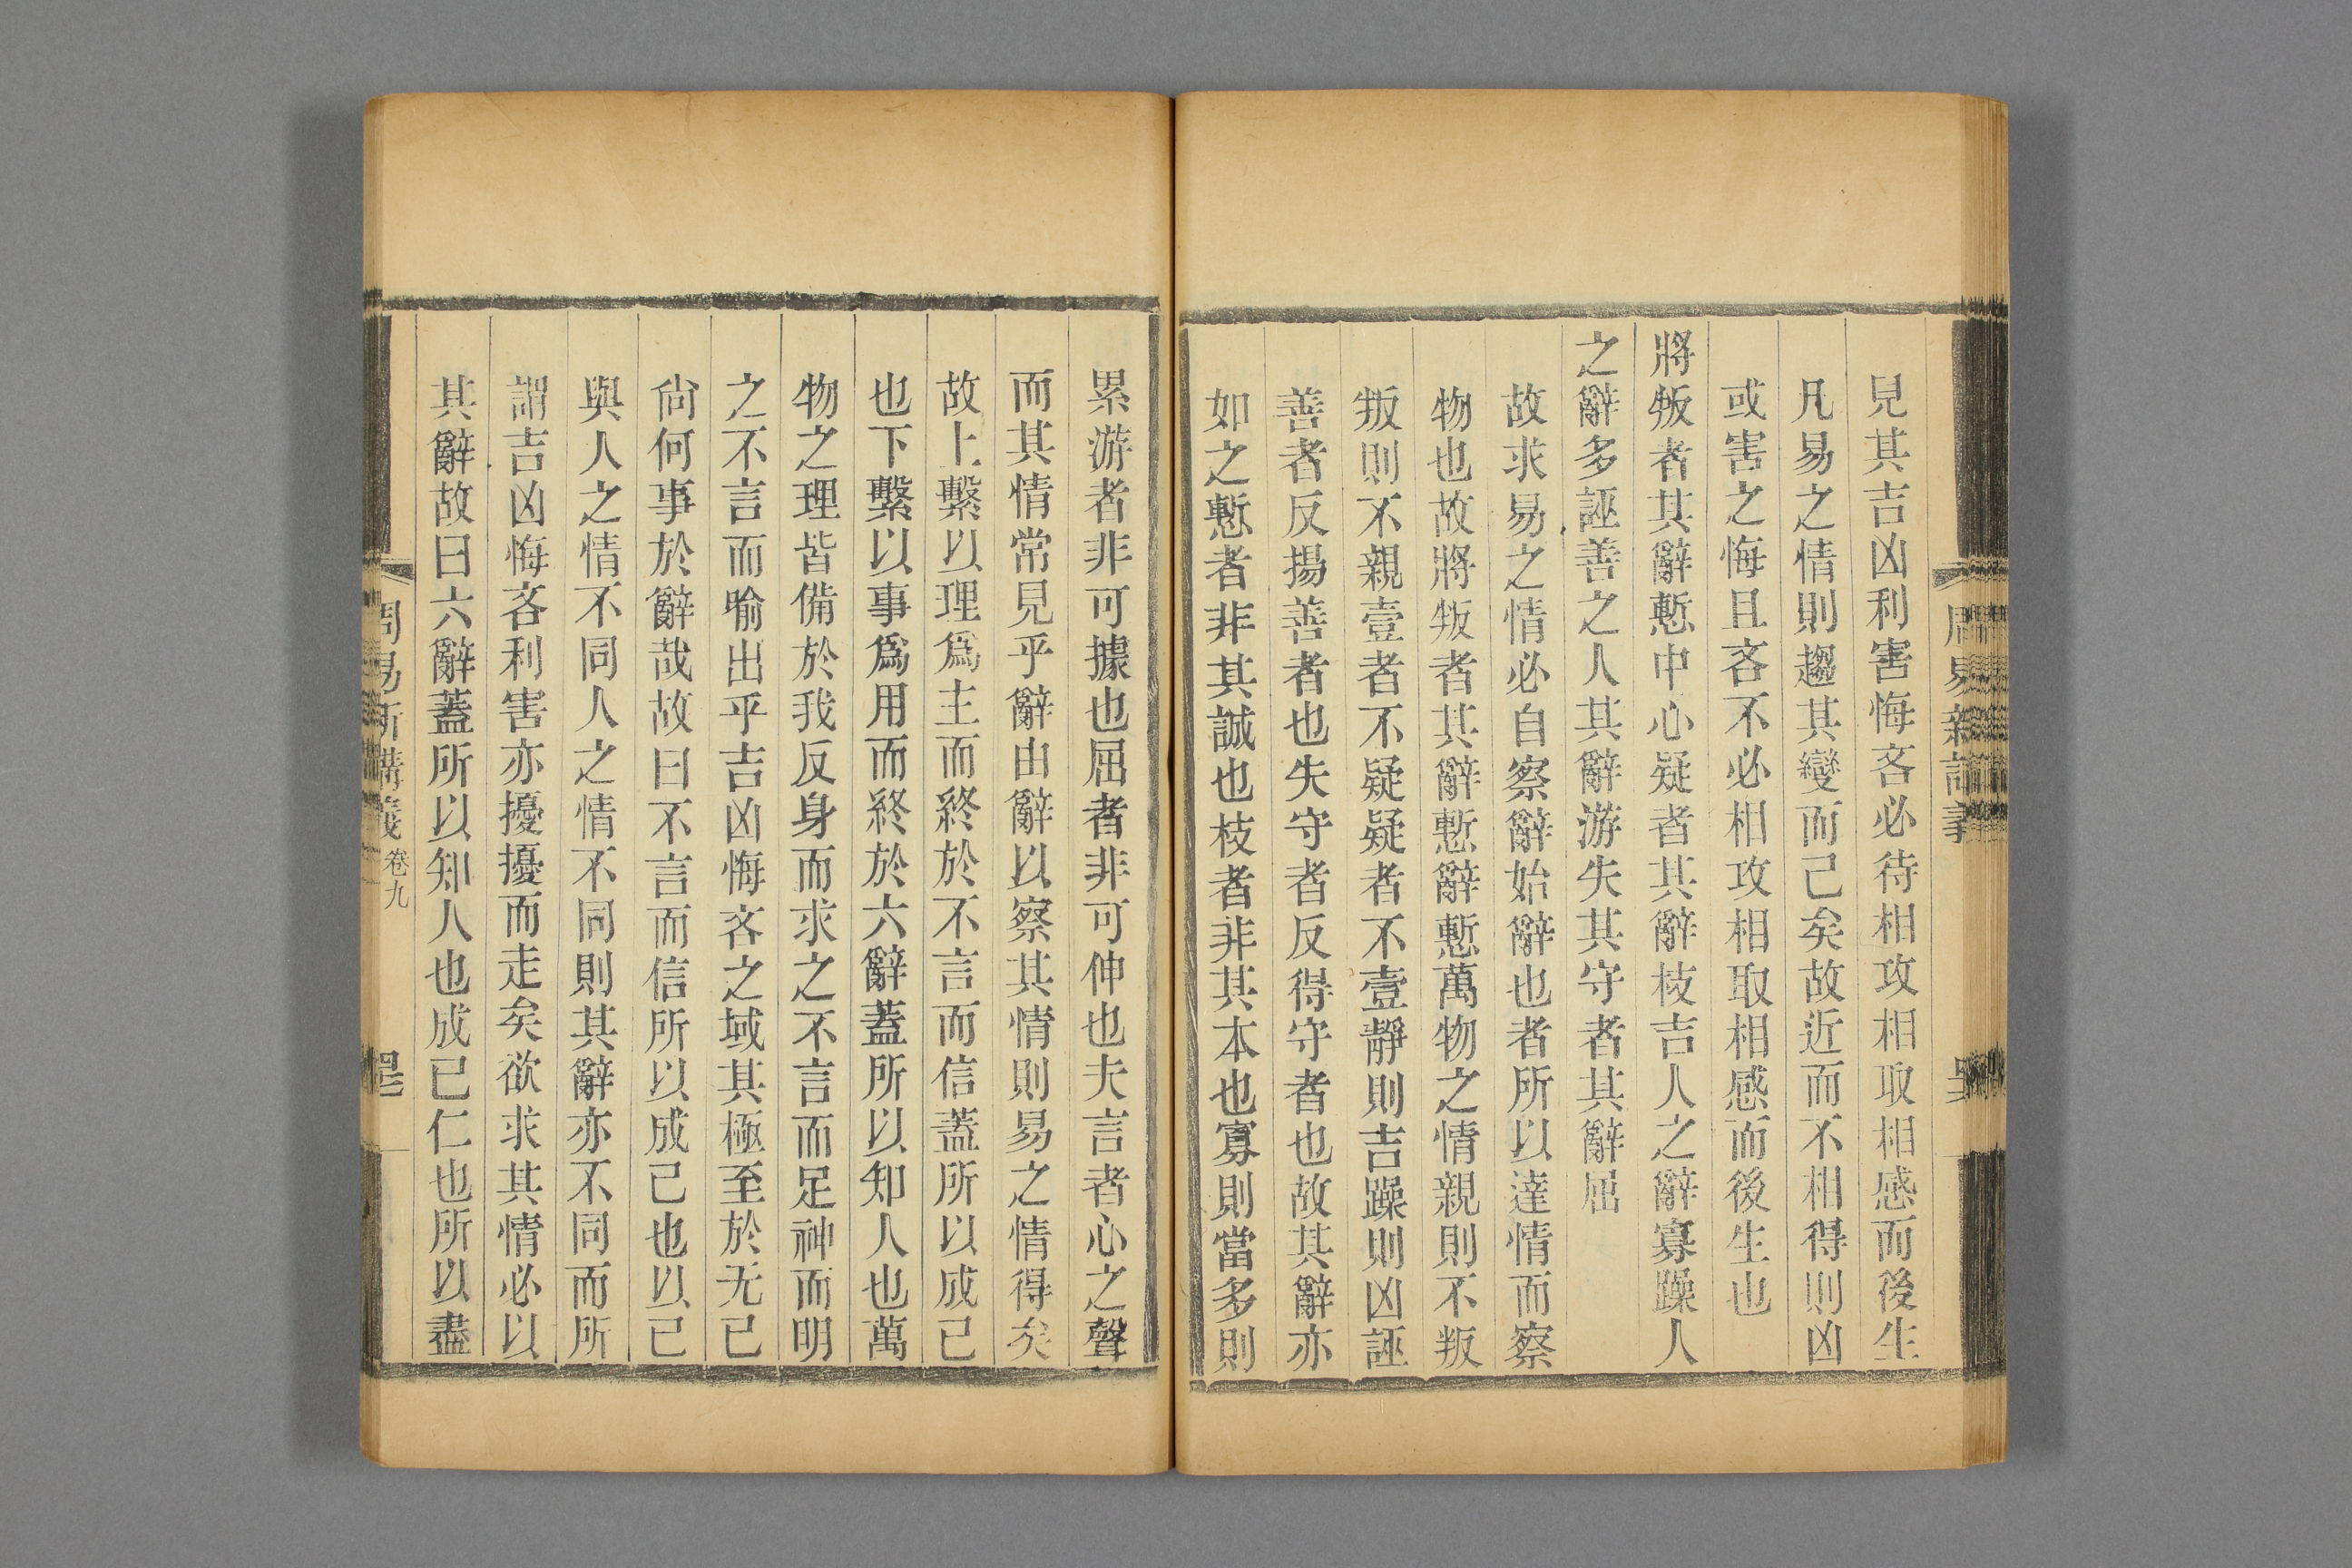 見其吉凶利害悔吝必待相攻相取相感而後生
凡易之情則趨其變而已矣故近而不相得則凶
或害之悔且吝不必相攻相取相感而後生也
將叛者其辭慙中心疑者其辭枝吉人之辭寡躁人
之辭多誣善之人其辭游失其守者其辭屈
故求易之情必自察辭始辭也者所以達情而察
物也故將叛者其辭慙辭慙萬物之情親則不叛
叛則不親壹者不疑疑者不壹靜則吉躁則凶誣
善者反揚善者也失守者反得守者也故其辭亦
如之慙者非其誠也枝者非其本也寡則當多則
累游者非可據也屈者非可伸也夫言者心之聲
而其情常見乎辭由辭以察其情則易之情得矣
故上繫以理爲主而終於不言而信蓋所以成己
也下繫以事爲用而終於六辭蓋所以知人也萬
物之理皆備於我反身而求之不言而足神而明
之不言而喻出乎吉凶悔吝之域其極至於无已
尙何事於辭哉故曰不言而信所以成己也以己
與人之情不同人之情不同則其辭亦不同而所
謂吉凶悔吝利害亦擾擾而走矣欲求其情必以
其辭故曰六辭蓋所以知人也成己仁也所以盡
周易新講義 卷九